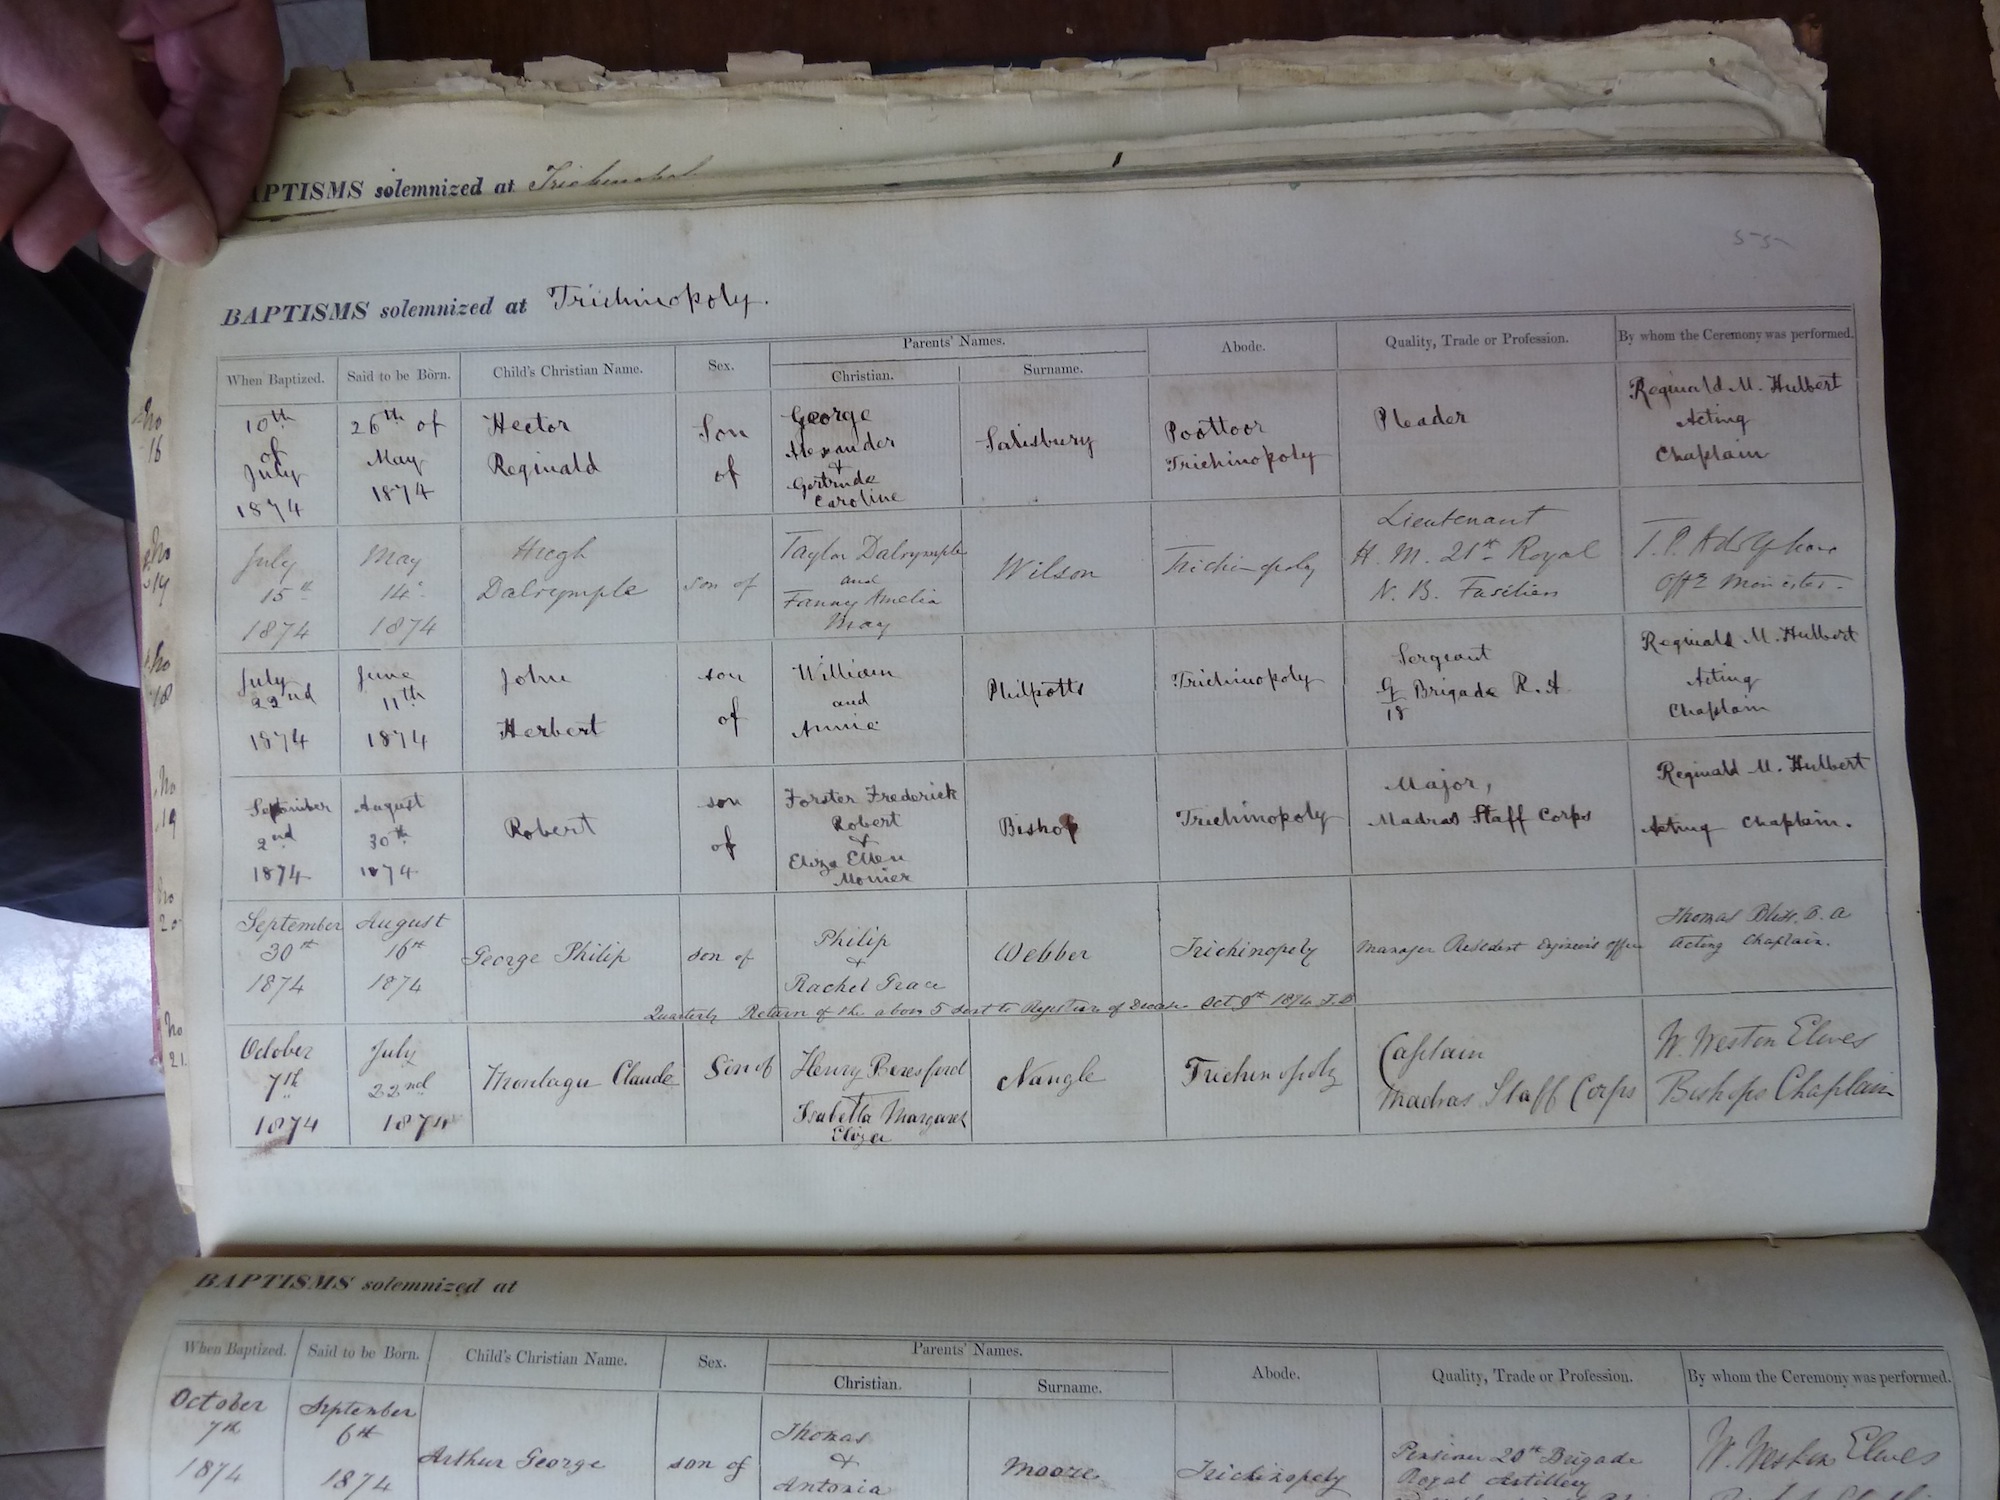 BAPTISMS solemnized at
55
BAPTISMS solemnized at Trichinopoly.
When Baptized. Said to be Born. Child's Christian Name. Sex. Parents' Names. Christian. Surname. Abode. Quality, Trade or Profession. By whom the Ceremony was performed.
No 16
10th of July 1874
26th of May 1874
Hector Reginald
Son of
George Alexander & Gertrude Caroline
Salisbury
Poottoor Trichinopoly
Pleader
Reginald M. Hulbert
Acting
Chaplain
No
July 15th 1874
May 14th 1874
Hugh Dalrymple
son of
Taylor Dalrymple and Fanny Amelia May
Wilson
Trichinopoly
Lieutenant
H. M. 21st Royal
N. B. Fusiliers
No 18
July 22nd 1874
June 11th 1874
John Herbert
son of
William and Annie
Philpotts
Trichinopoly
Sergeant
G/18 Brigade R. A.
Reginald M. Hulbert
Acting
Chaplain
No 19
September 2nd 1874
August 30th 1874
Robert
son of
Forster Frederick Robert & Eliza Ellen Monier
Bishop
Trichinopoly
Major,
Madras Staff Corps
Reginald M. Hulbert
Acting Chaplain.
No 20
September 30th 1874
August 16th 1874
George Philip
son of
Philip & Rachel Grace
Webber
Trichinopoly
Manager Resident Engineer's Office
Thomas Bliss. B. A
Acting Chaplain.
Quarterly Return of the above 5 sent to Registrar of Diocese Oct 9th 1874 T.B
No 21.
October 7th 1874
July 22nd 1874
Montagu Claude
Son of
Henry Beresford
Isabella Margaret Eliza
Nangle
Trichinopoly
Captain
Madras Staff Corps
W. Weston Elwes
Bishops Chaplain
BAPTISMS solemnized at
When Baptized. Said to be Born. Child's Christian Name. Sex. Parents' Names. Christian. Surname. Abode. Quality, Trade or Profession. By whom the Ceremony was performed.
October 7th 1874
September 6th 1874
Arthur George
son of
Thomas & Antonia
Moore
Trichinopoly
Pensioner 20th Brigade
Royal Artillery
W. Weston Elwes